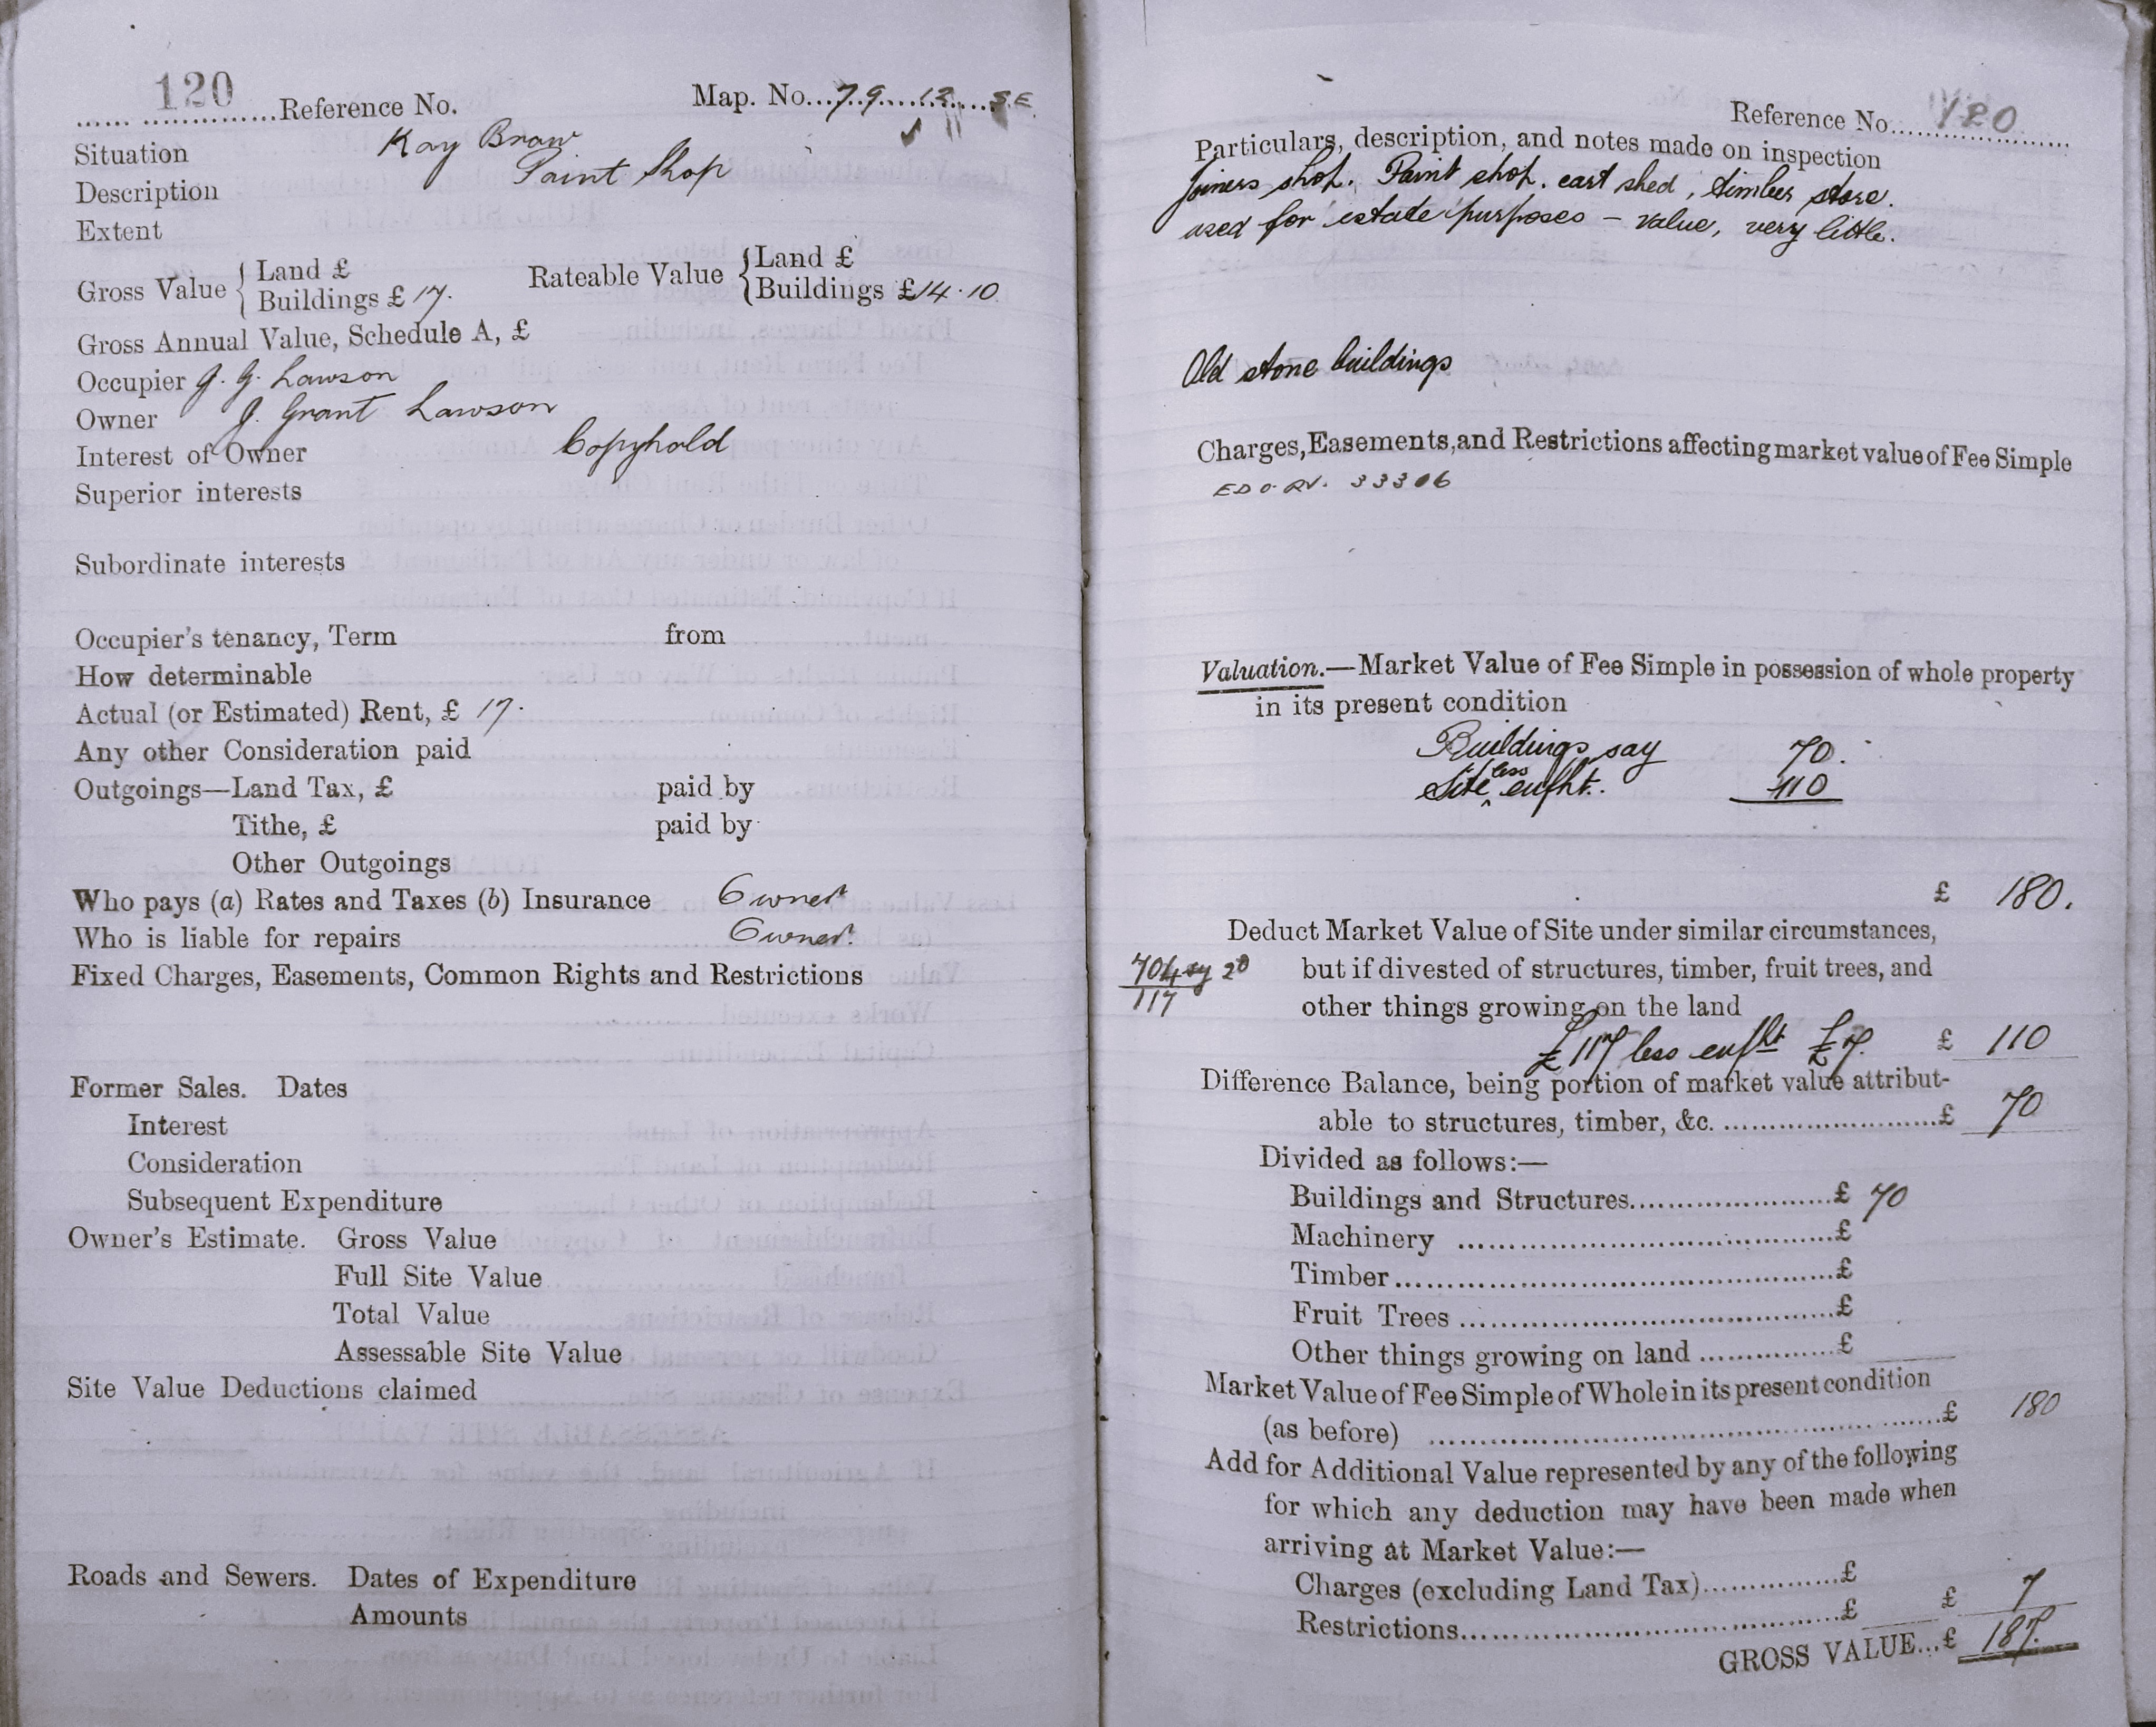 120 ......Reference No. Map. No...79...12...S.E
Situation Kay Braw
Description Paint Shop
Extent
Gross Value { Land £
Buildings £ 17.
Rateable Value { Land £
Buildings £14.10
Gross Annual Value, Schedule A, £
Occupier J. G. Lawson
Owner J. Grant Lawson
Interest of Owner Copyhold
Superior interests
Subordinate interests
Occupier's tenancy, Term from
How determinable
Actual (or Estimated) Rent, £ 17.
Any other Consideration paid
Outgoings—Land Tax, £ paid by
Tithe, £ paid by
Other Outgoings
Who pays (a) Rates and Taxes (b) Insurance Owner
Who is liable for repairs Owner.
Fixed Charges, Easements, Common Rights and Restrictions
Former Sales. Dates
Interest
Consideration
Subsequent Expenditure
Owner's Estimate. Gross Value
Full Site Value
Total Value
Assessable Site Value
Site Value Deductions claimed
Roads and Sewers. Dates of Expenditure
Amounts
Reference No....120
Particulars, description, and notes made on inspection
Joiners shop. Paint shop. cart shed, timber store.
used for estate purposes – value, very little.
Old stone buildings
Charges, Easements, and Restrictions affecting market value of Fee Simple
33306
Valuation.—Market Value of Fee Simple in possession of whole property
in its present condition
Buildings say 70.
Site less enfht. 110
£ 180.
Deduct Market Value of Site under similar circumstances,
704 sy 2d but if divested of structures, timber, fruit trees, and
117 other things growing on the land
£117 less enfht £7. £ 110
Difference Balance, being portion of market value attribut-
able to structures, timber, &c. ......£ 70
Divided as follows:—
Buildings and Structures......£ 70
Machinery ......£
Timber......£
Fruit Trees ......£
Other things growing on land ......£
Market Value of Fee Simple of Whole in its present condition
(as before) ......£ 180
Add for Additional Value represented by any of the following
for which any deduction may have been made when
arriving at Market Value:—
Charges (excluding Land Tax)......£
Restrictions......£ £ 7
GROSS VALUE...£ 187.